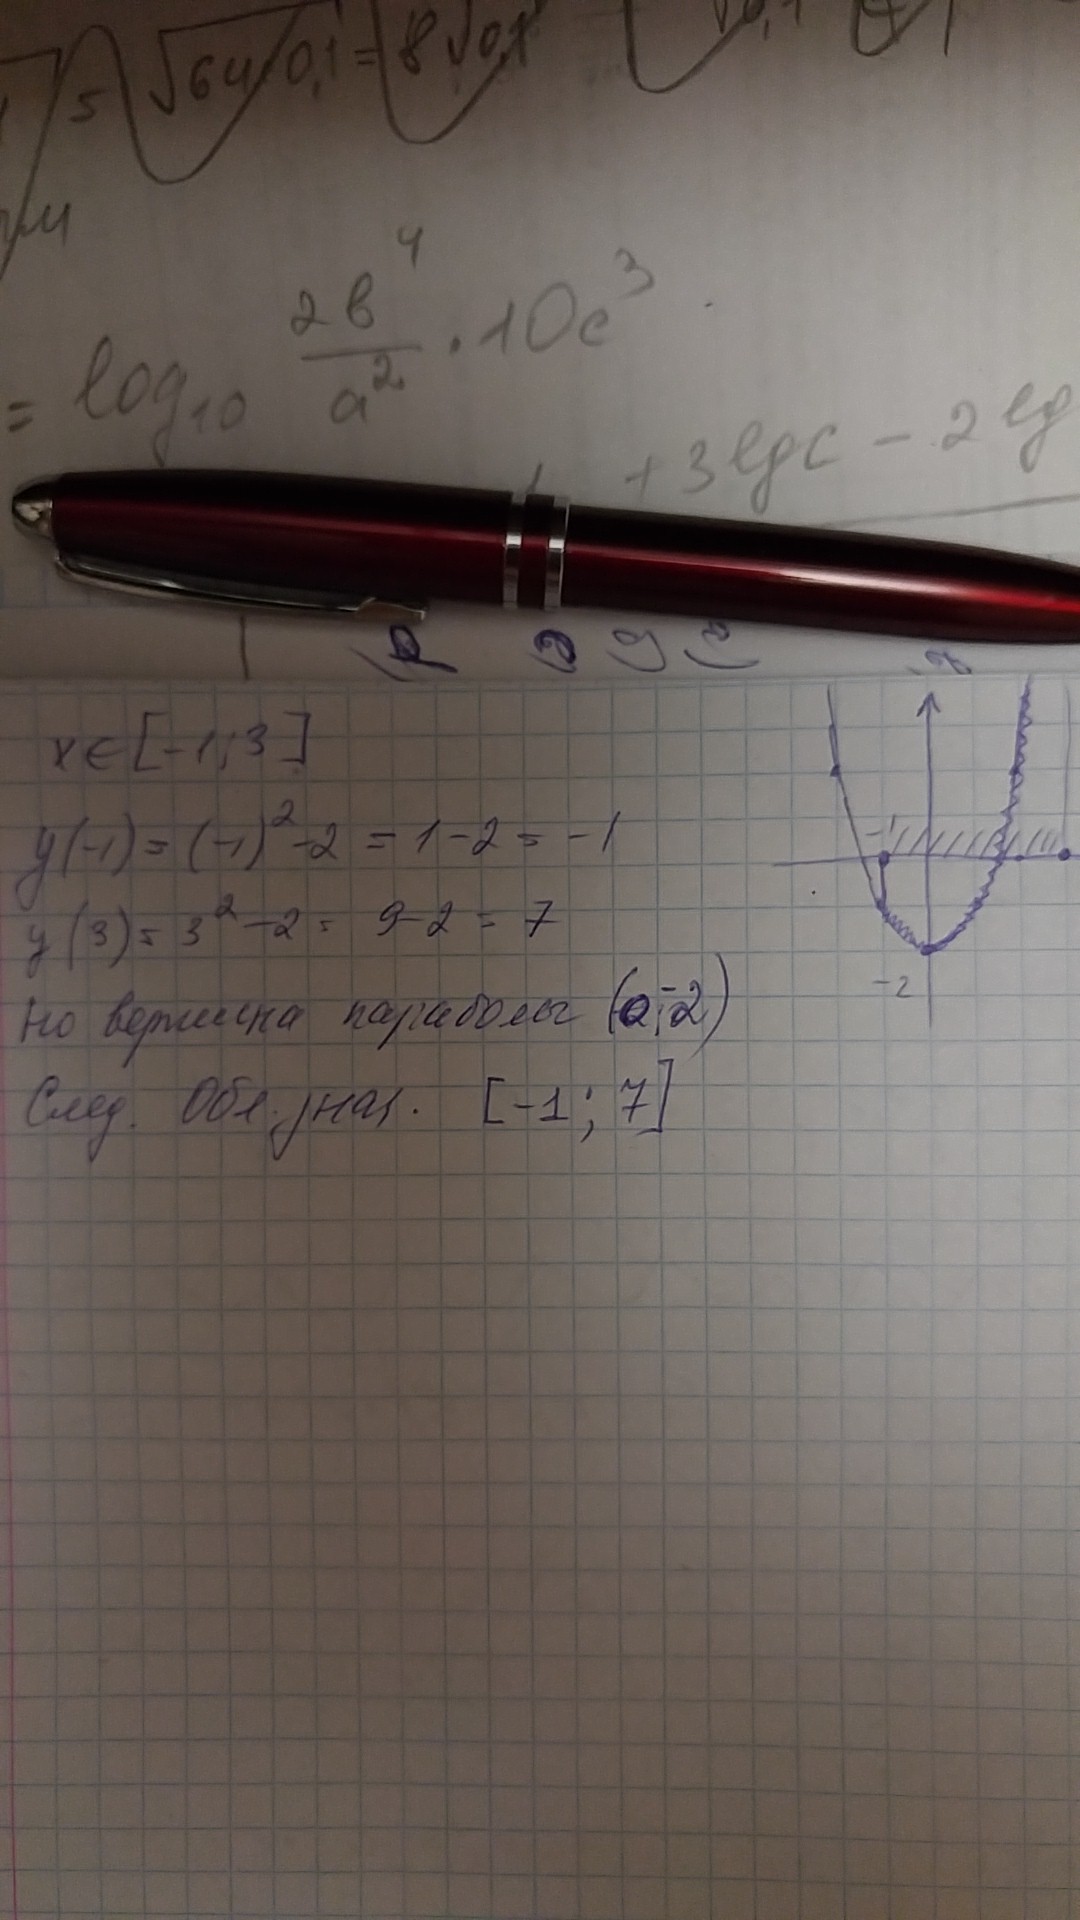 5 √64·0,1 = 8√0,1
= log₁₀ 2в⁴/a² · 10c³
+ 3 lg c - 2 lg
x ∈ [-1; 3]
y(-1) = (-1)² - 2 = 1 - 2 = -1
y(3) = 3² - 2 = 9 - 2 = 7
но вершина параболы (0;-2)
След. Обл. знач. [-1; 7]
-1
-2